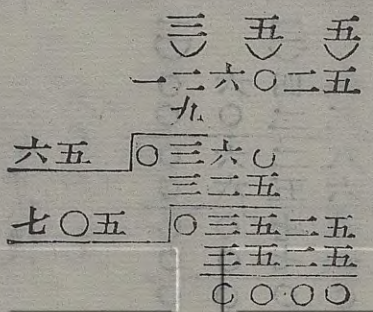 三五五
一二六〇二五
九
六五 〇三六〇
三二五
七〇五 〇三五二五
三五二五
〇〇〇〇